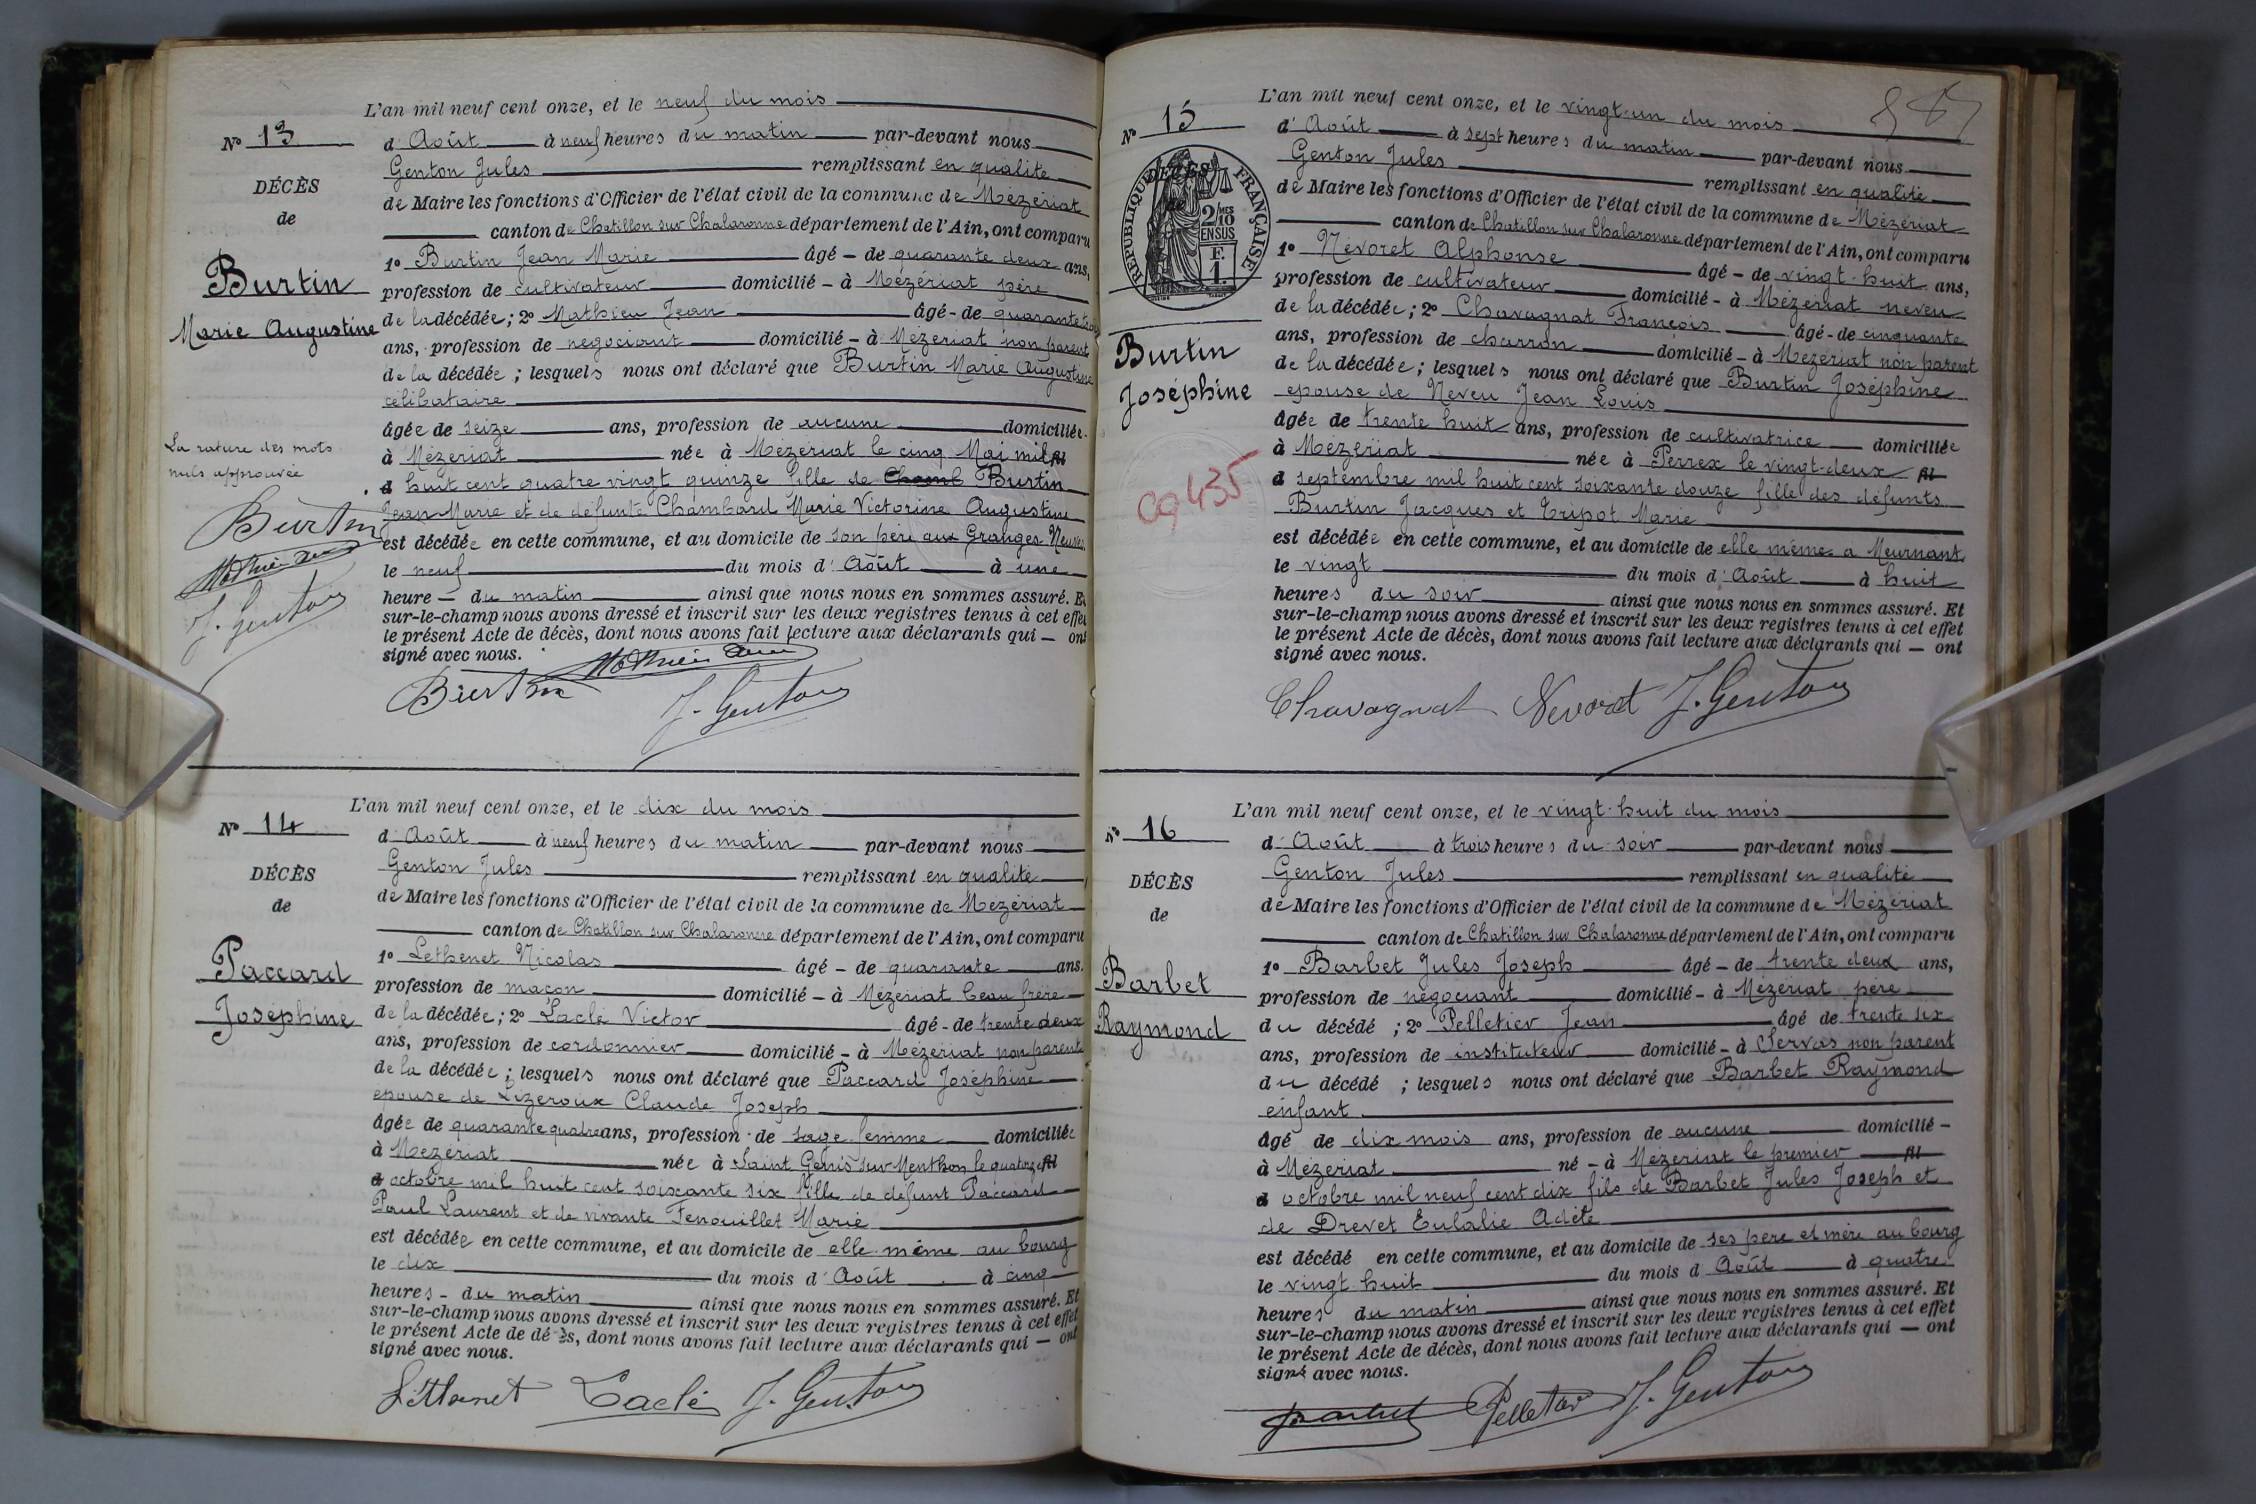 L'an mil neuf cent onze, et le neuf du mois
No 13
d'Août à neuf heures du matin par-devant nous
Genton Jules remplissant en qualité
DÉCÈS
de Maire les fonctions d'Officier de l'état civil de la commune de Mézériat
de
canton de Chatillon sur Chalaronne département de l'Ain, ont comparu
Burtin
1º Burtin Jean Marie âgé - de quarante deux ans,
profession de cultivateur domicilié - à Mézériat père
Marie Augustine
de la décédée; 2º Mathieu Jean âgé - de quarante trois
ans, profession de négociant domicilié - à Mézériat non parent
de la décédée; lesquels nous ont déclaré que Burtin Marie Augustine
célibataire
âgée de seize ans, profession de aucune domiciliée
La rature des mots
nuls approuvée
à Mézériat née à Mézériat le cinq Mai mil
huit cent quatre vingt quinze fille de Chamb Burtin
Jean Marie et de défunte Chambard Marie Victorine Augustine
Burtin
est décédée en cette commune, et au domicile de son père aux Granges Neuves
Mathieu Jean
le neuf du mois d'Août à une
J. Genton
heure - du matin ainsi que nous nous en sommes assuré. Et
sur-le-champ nous avons dressé et inscrit sur les deux registres tenus à cet effet
le présent Acte de décès, dont nous avons fait lecture aux déclarants qui — ont
signé avec nous.
Burtin Mathieu Jean J. Genton
L'an mil neuf cent onze, et le dix du mois
No 14
d'Août à neuf heures du matin par-devant nous
Genton Jules remplissant en qualité
DÉCÈS
de Maire les fonctions d'Officier de l'état civil de la commune de Mézériat
de
canton de Chatillon sur Chalaronne département de l'Ain, ont comparu
Paccard
1º Lethenet Nicolas âgé - de quarante ans.
profession de maçon domicilié - à Mézériat beau frère
Joséphine
de la décédée; 2º Laclé Victor âgé - de trente deux
ans, profession de cordonnier domicilié - à Mézériat non parent
de la décédée; lesquels nous ont déclaré que Paccard Joséphine
épouse de Lizeroux Claude Joseph
âgée de quarante quatre ans, profession de sage femme domiciliée
à Mézériat née à Saint Genis sur Menthon le quatorze
octobre mil huit cent soixante six fille de défunt Paccard
Paul Laurent et de vivante Fenouillet Marie
est décédée en cette commune, et au domicile de elle même au bourg
le dix du mois d'Août à cinq
heures - du matin ainsi que nous nous en sommes assuré. Et
sur-le-champ nous avons dressé et inscrit sur les deux registres tenus à cet effet
le présent Acte de décès, dont nous avons fait lecture aux déclarants qui — ont
signé avec nous.
Lethenet Laclé J. Genton
L'an mil neuf cent onze, et le vingt-un du mois
No 15
d'Août à sept heures du matin par-devant nous
Genton Jules remplissant en qualité
DÉCÈS
de
RÉPUBLIQUE FRANÇAISE
2/10 EN SUS
F. 1.
de Maire les fonctions d'Officier de l'état civil de la commune de Mézériat
canton de Chatillon sur Chalaronne département de l'Ain, ont comparu
1º Névoret Alphonse âgé - de vingt-huit ans,
profession de cultivateur domicilié - à Mézériat neveu
de la décédée; 2º Chavagnat François âgé - de cinquante
Burtin
Joséphine
ans, profession de charron domicilié - à Mézériat non parent
de la décédée; lesquels nous ont déclaré que Burtin Joséphine
épouse de Neveu Jean Louis
âgée de trente huit ans, profession de cultivatrice domiciliée
à Mézériat née à Perrex le vingt-deux
septembre mil huit cent soixante douze fille des défunts
cq 435
Burtin Jacques et Tripot Marie
est décédée en cette commune, et au domicile de elle même a Meurnant
le vingt du mois d'Août à huit
heures du soir ainsi que nous nous en sommes assuré. Et
sur-le-champ nous avons dressé et inscrit sur les deux registres tenus à cet effet
le présent Acte de décès, dont nous avons fait lecture aux déclarants qui — ont
signé avec nous.
Chavagnat Nevoret J. Genton
L'an mil neuf cent onze, et le vingt-huit du mois
No 16
d'Août à trois heures du soir par-devant nous
Genton Jules remplissant en qualité
DÉCÈS
de Maire les fonctions d'Officier de l'état civil de la commune de Mézériat
de
canton de Chatillon sur Chalaronne département de l'Ain, ont comparu
Barbet
1º Barbet Jules Joseph âgé - de trente deux ans,
profession de négociant domicilié - à Mézériat père
Raymond
du décédé; 2º Pelletier Jean âgé de trente six
ans, profession de instituteur domicilié - à Servas non parent
du décédé; lesquels nous ont déclaré que Barbet Raymond
enfant
âgé de dix mois ans, profession de aucune domicilié -
à Mézériat né - à Mézériat le premier
octobre mil neuf cent dix fils de Barbet Jules Joseph et
de Drevet Eulalie Adèle
est décédé en cette commune, et au domicile de ses père et mère au bourg
le vingt huit du mois d Août à quatre
heures du matin ainsi que nous nous en sommes assuré. Et
sur-le-champ nous avons dressé et inscrit sur les deux registres tenus à cet effet
le présent Acte de décès, dont nous avons fait lecture aux déclarants qui — ont
signé avec nous.
Barbet Pelletier J. Genton